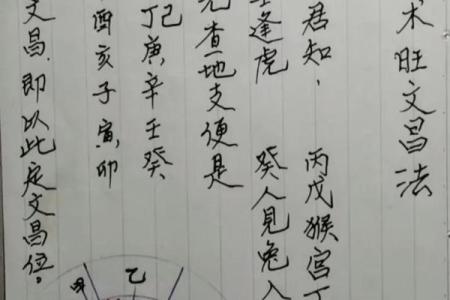 术旺文昌法
君知，丙戊猴宫丁
逢虎 癸人见兔入
查地支便是
丁己庚辛壬癸
酉亥子寅卯
文昌，即以此定文昌位。
甲
乙